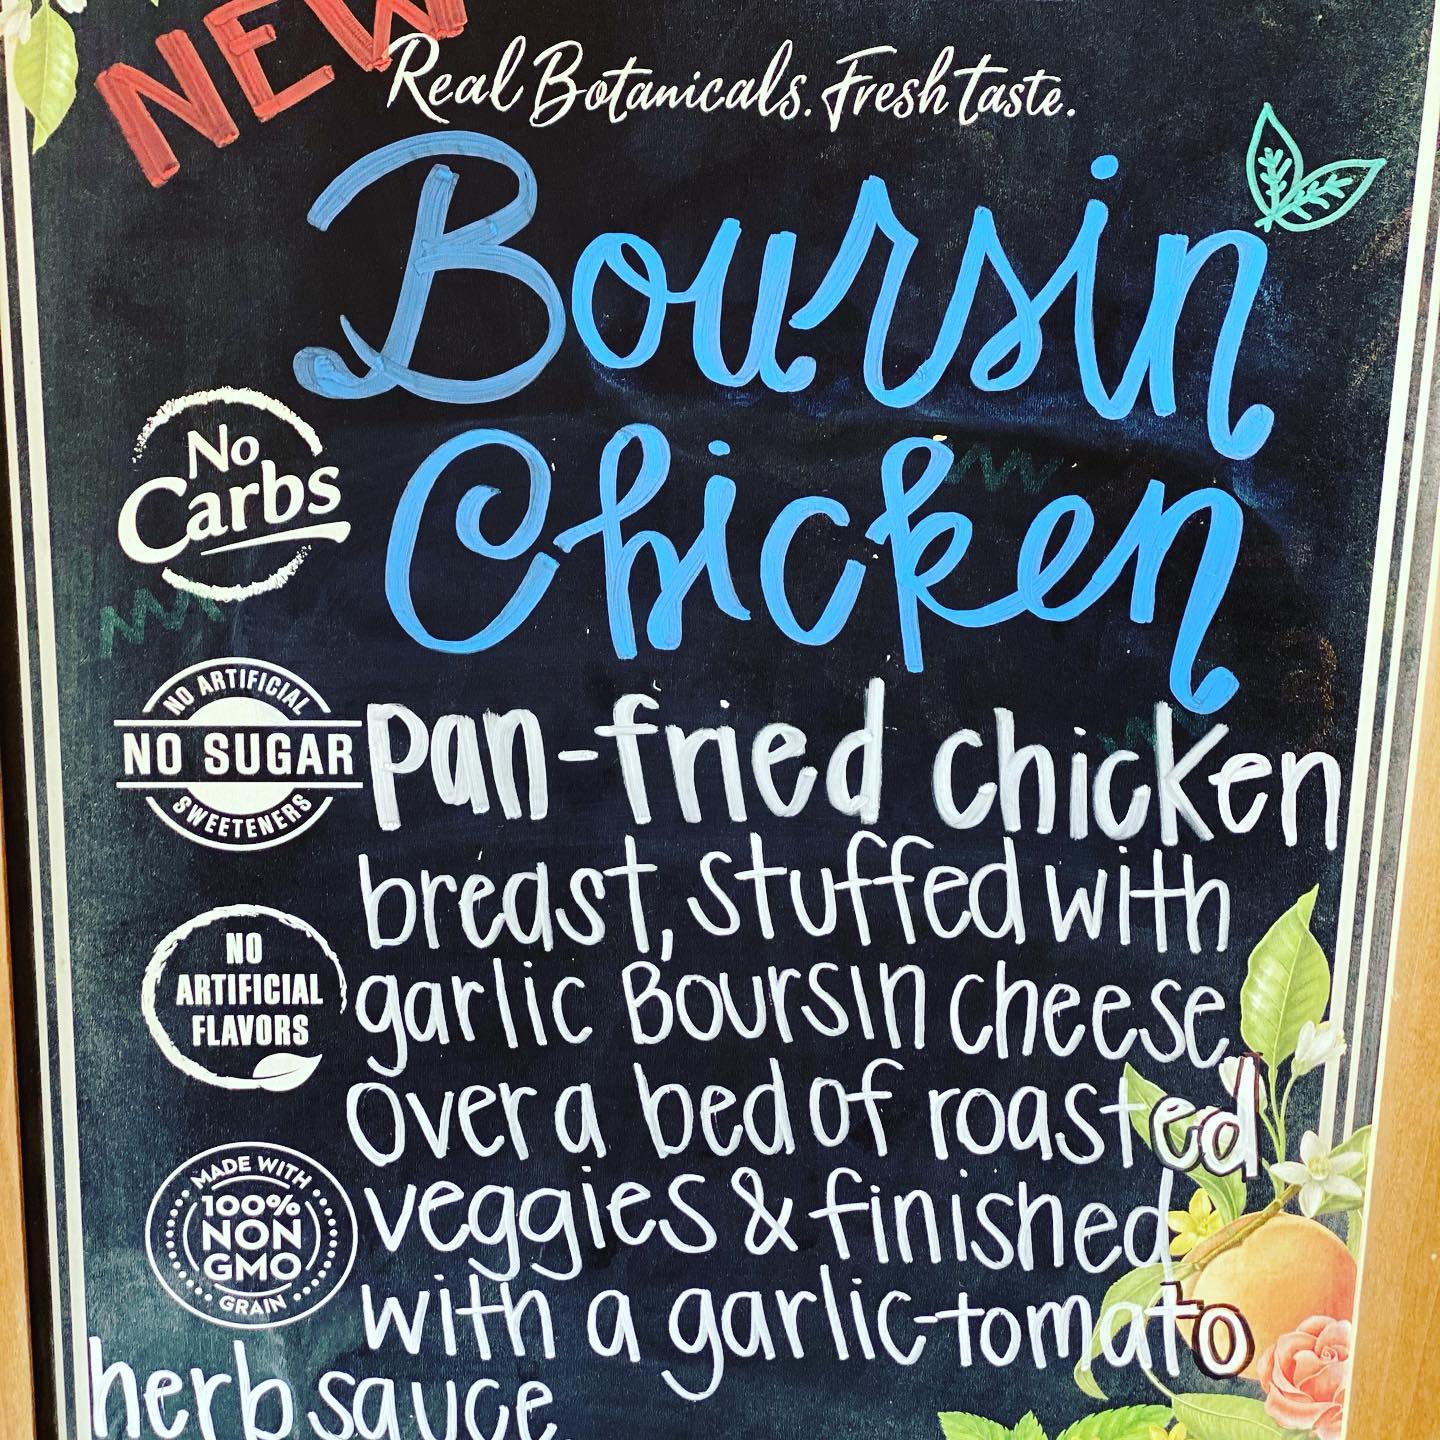 NEW
Real Botanicals. Fresh taste.
Boursin
Chicken
No
Carbs
NO ARTIFICIAL
NO SUGAR
SWEETENERS
NO
ARTIFICIAL
FLAVORS
MADE WITH
100%
NON
GMO
GRAIN
pan-fried chicken
breast, stuffed with
garlic Boursin cheese
over a bed of roasted
veggies & finished
with a garlic-tomato
herb sauce.